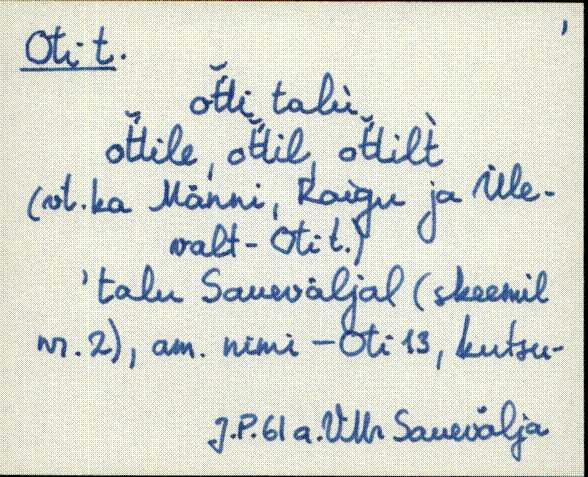 Oti t.
ot̆ti talù
ot̆tile, ot̆til, ot̆tilt̀
(vt. ka Männi, Raigu ja Üle-
valt-Oti t.)
'talu Saueväljal (skeemil
nr. 2), am. nimi – Oti 13, kutsu-
J.P. 61 a. VMr Sauevälja